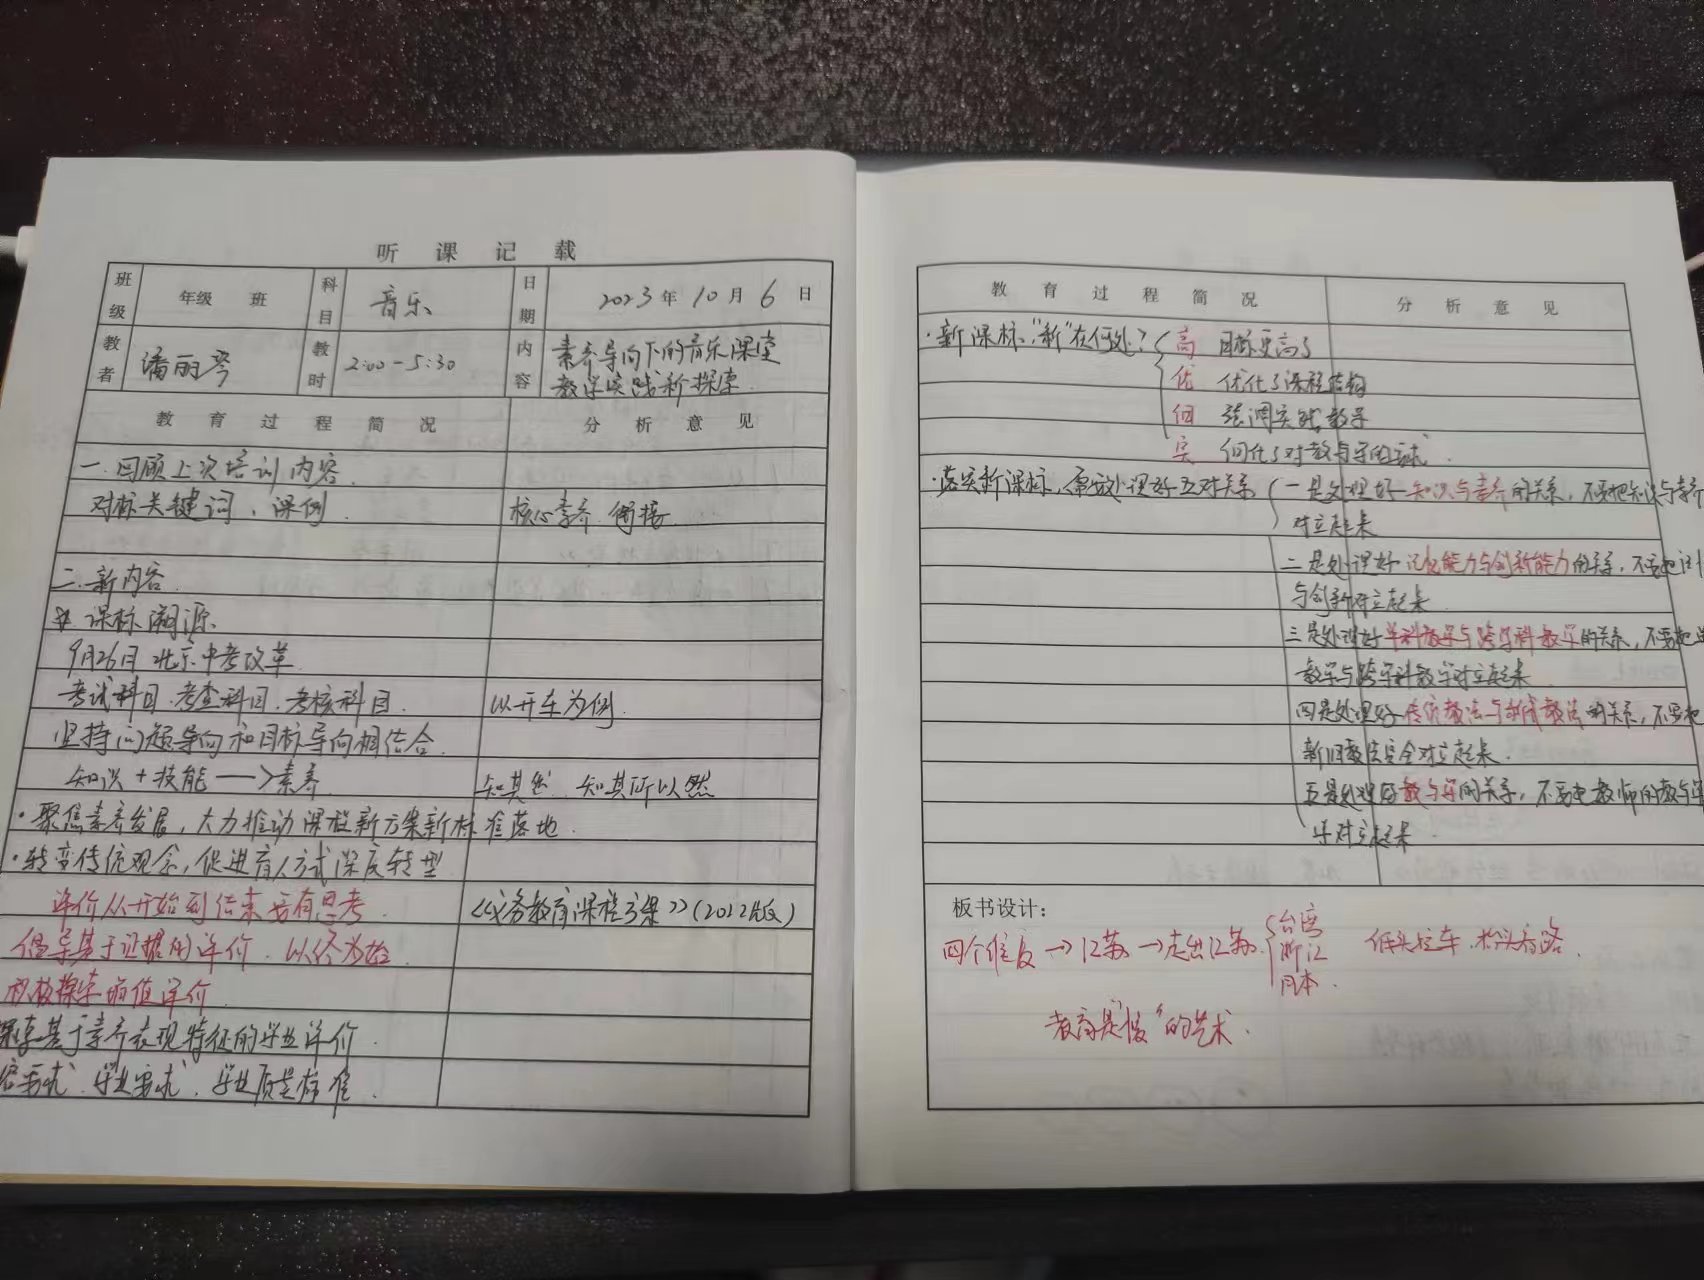 听课记载
班级 年级 班 科目 音乐 日期 2023年10月6日
教者 潘丽琴 教时 2:00-5:30 内容 素养导向下的音乐课堂
教学实践新探索
教育过程简况 分析意见
一.回顾上次培训内容.
对标关键词、课例. 核心素养.
二.新内容.
课标溯源
9月26日 北京中考改革.
考试科目.考查科目.考核科目. 以开车为例.
坚持问题导向和目标导向相结合.
知识+技能→素养. 知其然.知其所以然
·聚焦素养发展,大力推动课程新方案新标准落地.
·转变传统观念,促进育人方式深度转型
评价从开始到结束要有思考. 《义务教育课程方案》(2022版)
倡导基于证据的评价.以终为始.
积极探索增值评价.
探索基于素养表现特征的学业评价.
容要求、学业要求、学业质量标准.
教育过程简况 分析意见
·新课标,"新"在何处? 高 目标更高了
优 优化了课程结构
强调实践教学
实 细化了对教与学的要求.
·落实新课标,需要处理好五对关系 一是处理好知识与素养的关系,不要把知识与素养
对立起来
二是处理好记忆能力与创新能力的关系,不要把
与创新对立起来
三是处理好单科教学与跨学科教学的关系,不要把
教学与跨学科教学对立起来
四是处理好传统教法与新教法的关系,不要把
新旧教法完全对立起来.
五是处理好教与学的关系,不要把教师的教与学
对立起来.
板书设计:
四个维度→江苏→走出江苏 台湾 低头拉车.抬头看路.
浙江
日本.
教育是慢"的艺术.